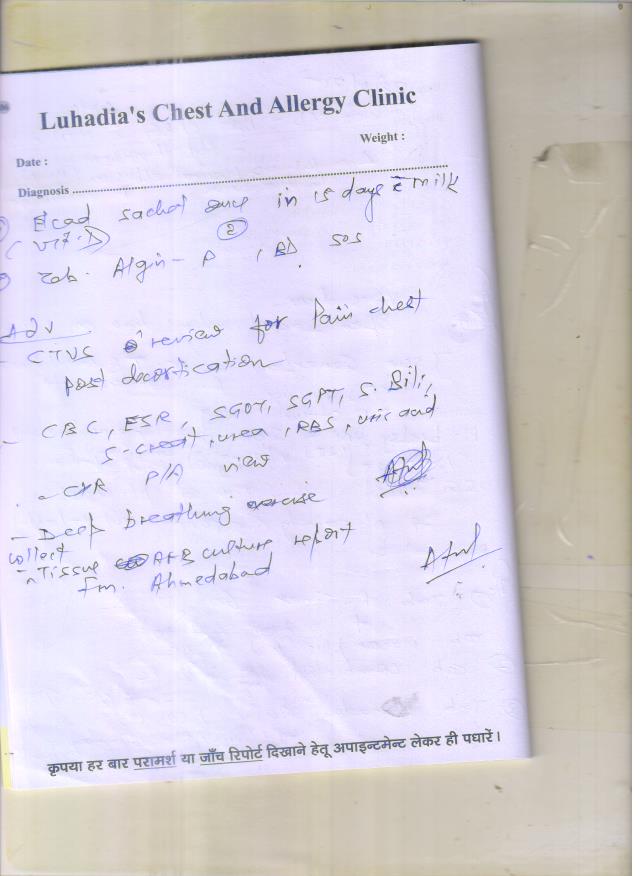 Luhadia's Chest And Allergy Clinic
Weight :
Date :
Diagnosis
sachet once in 15 days c̄ milk
(Vit. D) (2)
Tab. Algin - P 1 BD SOS
Adv
- CTVS review for Pain chest
post decortication
- CBC, ESR, SGOT, SGPT, S. Bili,
S-creat, urea, RBS, uric acid
- CXR P/A view
- Deep breathing exercise
collect
- Tissue AFB culture report
fm. Ahmedabad
कृपया हर बार परामर्श या जाँच रिपोर्ट दिखाने हेतू अपाइन्टमेन्ट लेकर ही पधारें।